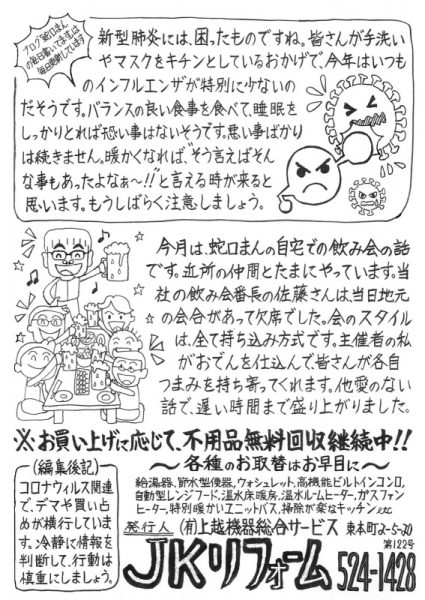 ブログ「蛇口まん
の毎日書いてますは
毎日更新しています
新型肺炎には、困ったものですね。皆さんが手洗い
やマスクをキチンとしているおかげで、今年はいつも
のインフルエンザが特別に少ないの
だそうです。バランスの良い食事を食べて、睡眠を
しっかりとれば恐い事はないそうです。悪い事ばかり
は続きません。暖かくなれば、“そう言えばそん
な事もあったよなぁ～!!”と言える時が来ると
思います。もうしばらく注意しましょう。
今月は、蛇口まんの自宅での飲み会の話
です。近所の仲間とたまにやっています。当
社の飲み会番長の佐藤さんは、当日地元
の会合があって欠席でした。会のスタイル
は、全て持ち込み方式です。主催者の私
がおでんを仕込んで、皆さんが各自
つまみを持ち寄ってくれます。他愛のない
話で、遅い時間まで盛り上がりました。
※お買い上げに応じて、不用品無料回収継続中!!
～各種のお取替はお早目に～
給湯器、節水型便器、ウォシュレット、高機能ビルトインコンロ、
自動型レンジフード、温水床暖房、温水ルームヒーター、ガスファン
ヒーター、特別暖かいユニットバス、掃除が楽なキッチンetc
(編集後記)
コロナウィルス関連
で、デマや買い占
めが横行しています。
冷静に情報を
判断して、行動は
慎重にしましょう。
発行人 (有)上越機器総合サービス 東本町2-5-20
第122号
JKリフォーム 524-1428